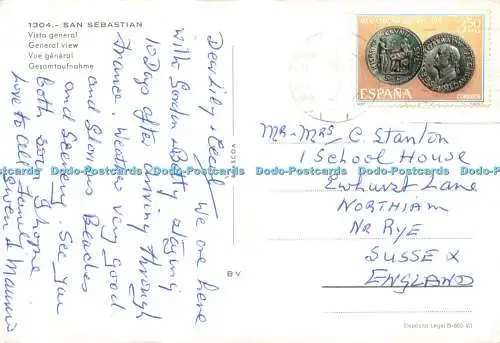 1304.- SAN SEBASTIAN
Vista general
General view
Vue général
Gesamtaufnahme
Dear Lily & Cecil, We are here
with Gordon & Betty staying
10 Days after driving through
France. Weather very good
and Glorious Beaches
and Scenery. See you
both soon I hope
Love to all family
Gwen & Maurice
B V
3,50
PTAS
ESPAÑA
CORREOS
MR - MRS C. Stanton
1 School House
Ewhurst Lane
NORTHIAM
NR RYE
SUSSEX
ENGLAND
Depósito Legal B-660-VII
Dodo Postcards Dodo Postcards Dodo Postcards Dodo Postcards Dodo Postcards